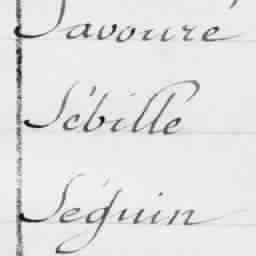 Savouré
Sébille
Séguin